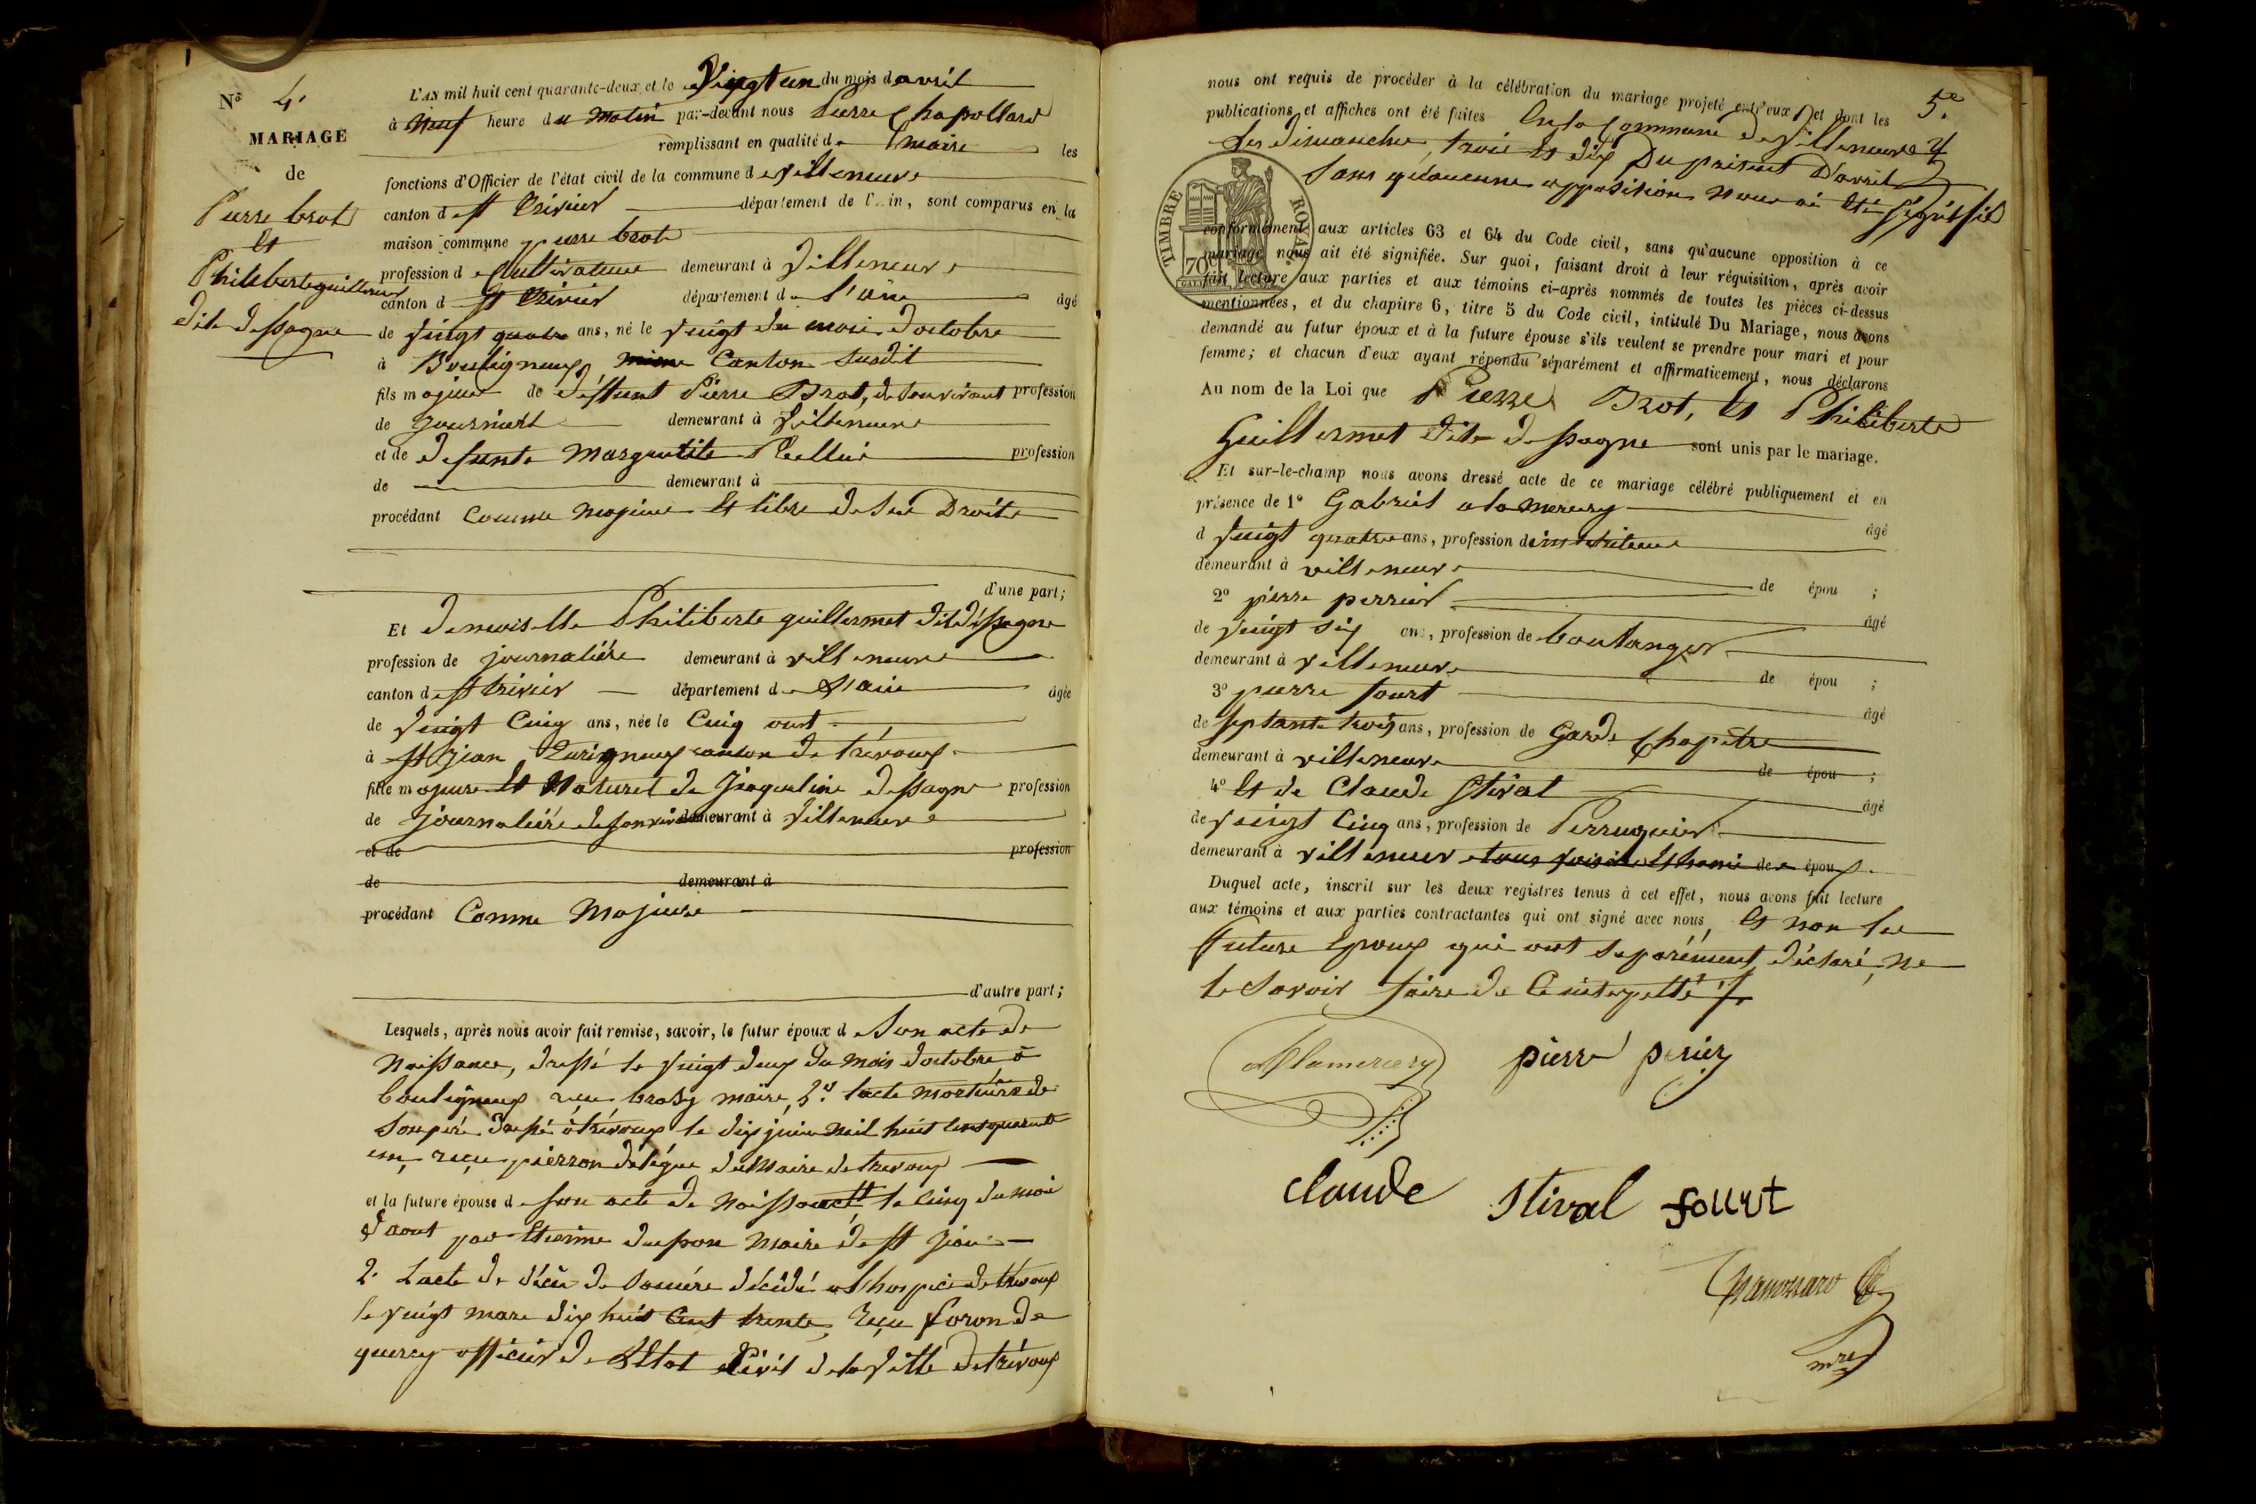 N° 4.
MARIAGE
de
Pierre brot
Et
Philiberte guillermet
dite despagne
L'AN mil huit cent quarante-deux et le Vingt un du mois d avril
à Neuf heure du matin par-devant nous Pierre Chapollard
remplissant en qualité de maire les
fonctions d'Officier de l'état civil de la commune de villeneuve
canton de St trivier département de l'Ain, sont comparus en la
maison commune pierre brot
profession de Cultivateur demeurant à Villeneuve
canton de St trivier département de l'ain âgé
de vingt quatre ans, né le vingt du mois doctobre
à Bouligneux, Canton susdit
fils majeur de déffunt Pierre Brot, de son vivant profession
de journalier demeurant à Villeneuve
et de defunte Marguerite profession
de demeurant à
procédant Comme majeur Et libre de ses Droits
d'une part;
Et demoiselle Philiberte guillermet dit déspagne
profession de journaliére demeurant à villeneuve
canton de St trivier département de l'ain âgée
de vingt Cinq ans, née le Cinq aout
à St jean Turigneux canton de trévoux
fille majeure Et Naturel de Jaqueline despagne profession
de journaliére de son vivant demeurant à Villeneuve
et de profession
de demeurant à
procédant Comme Majeure
d'autre part;
Lesquels, après nous avoir fait remise, savoir, le futur époux de Son acte de
Naissance, dressé le vingt deux du mois doctobre à
bouligneux maire, 2° lacte mortuaire de
son pére dressé à trévoux le dix juin mil huit cent quarante
un, reçu pierron délégué du Maire de trevoux
et la future épouse de son acte de Naissance le cinq du mois
d'aout par Etienne dupon Maire de St jean
2° Lacte de décès de sa mére décédé a l'hospice de trévoux
le vingt mars dix huit Cent trente, reçu foron de
quercy officier de L'Etat Civil de la ville de trévoux
5e
nous ont requis de procéder à la célébration du mariage projeté entr'eux, et dont les
publications et affiches ont été faites En la Commune de Villeneuve
Les dimanches, trois Et dix Du présent D'avril
Sans qu'aucune opposition nous ai été signifié
TIMBRE ROYAL
70 c
conformément aux articles 63 et 64 du Code civil, sans qu'aucune opposition à ce
mariage nous ait été signifiée. Sur quoi, faisant droit à leur réquisition, après avoir
fait lecture aux parties et aux témoins ci-après nommés de toutes les pièces ci-dessus
mentionnées, et du chapitre 6, titre 5 du Code civil, intitulé Du Mariage, nous avons
demandé au futur époux et à la future épouse s'ils veulent se prendre pour mari et pour
femme; et chacun d'eux ayant répondu séparément et affirmativement, nous déclarons
Au nom de la Loi que Pierre Brot, Et Philiberte
Guillermet dite despagne sont unis par le mariage.
Et sur-le-champ nous avons dressé acte de ce mariage célébré publiquement et en
présence de 1° Gabriel alamercery âgé
d vingt quatre ans, profession d'instituteur
demeurant à villeneuve de épou ;
2° pierre perrier âgé
de vingt six ans, profession de boulanger
demeurant à villeneuve de épou ;
3° pierre âgé
de septante trois ans, profession de Garde Champêtre
demeurant à villeneuve de épou ;
4° Et de Claude Stival âgé
de vingt Cinq ans, profession de Perruquier
demeurant à villeneuve tous voisins Et amis des époux.
Duquel acte, inscrit sur les deux registres tenus à cet effet, nous avons fait lecture
aux témoins et aux parties contractantes qui ont signé avec nous, Et non les
future Epoux qui ont separément déclaré ne
le savoir faire de ce interpellé
alamercery pierre perier
claude Stival
mre